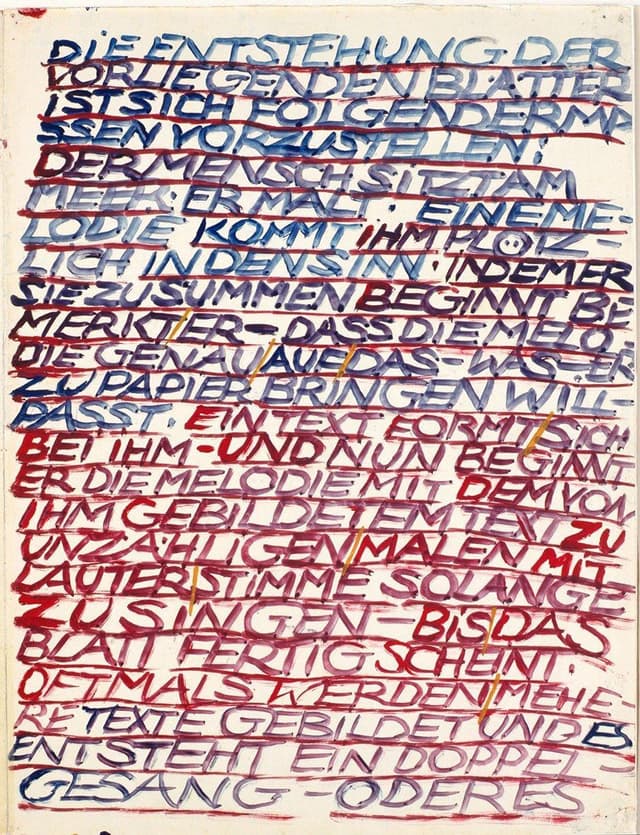 DIE ENTSTEHUNG DER
VORLIEGENDEN BLÄTTER
IST SICH FOLGENDERMA
SSEN VORZUSTELLEN:
DER MENSCH SITZT AM
MEER. ER MALT. EINE ME-
LODIE KOMMT IHM PLÖTZ-
LICH IN DEN SINN. INDEM ER
SIE ZU SUMMEN BEGINNT BE
MERKT/ER-DASS DIE MELO-
DIE GENAU/AUF/DAS-WAS-ER
ZU PAPIER BRINGEN WILL-
PASST. EIN TEXT FORMT/SICH
BEI IHM-UND NUN BEGINNT
ER DIE MELODIE MIT DEM VON
IHM GEBILDETEM TEXT ZU
UNZÄHLIGEN/MALEN MIT
LAUTER/STIMME SOLANGE
ZU SINGEN-BIS/DAS
BLATT FERTIG SCHEINT.
OFTMALS WERDEN/MEHE-
RE TEXTE GEBILDET UND ES
ENTSTEHT EIN DOPPEL-
GESANG-ODER ES